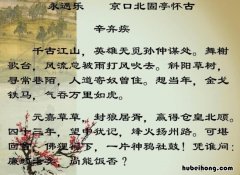 永遇乐 京口北固亭怀古
辛弃疾
千古江山，英雄无觅孙仲谋处。舞榭
歌台，风流总被雨打风吹去。斜阳草树，
寻常巷陌，人道寄奴曾住。想当年，金戈
铁马，气吞万里如虎。
元嘉草草，封狼居胥，赢得仓皇北顾。
四十三年，望中犹记，烽火扬州路。可堪
回首，佛狸祠下，一片神鸦社鼓！凭谁问：
廉颇老矣，尚能饭否？
hubeihong.com